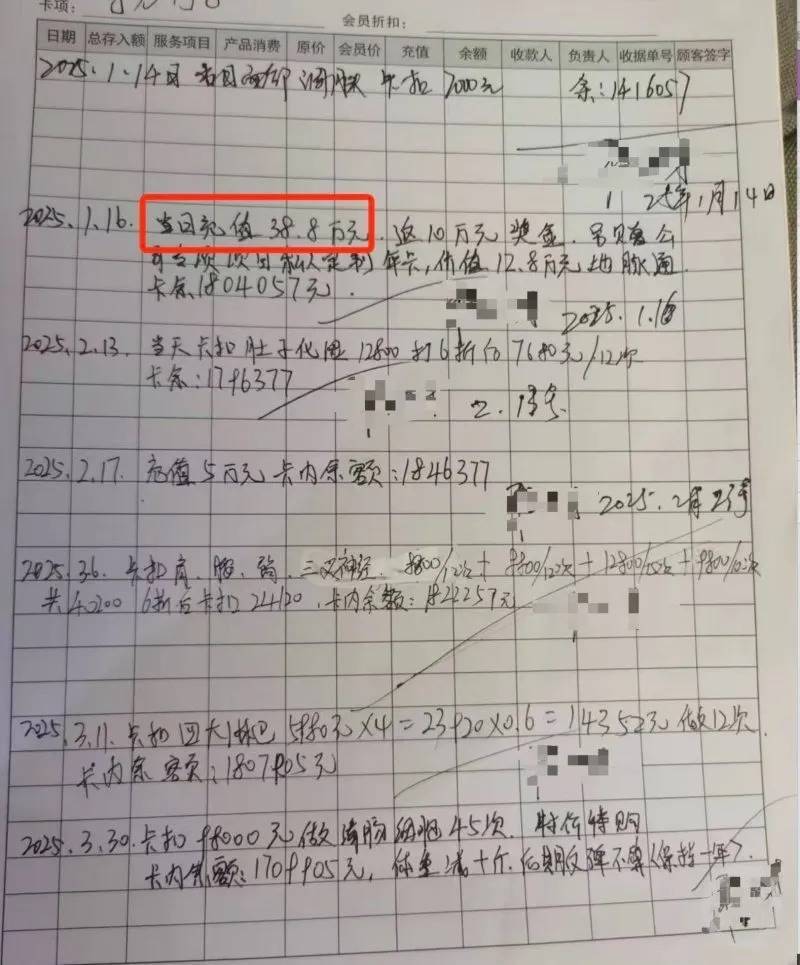 卡项:
会员折扣:
日期 总存入额 服务项目 产品消费 原价 会员价 充值 余额 收款人 负责人 收据单号 顾客签字
2025.1.14日 卡扣 7000元 余:1416057
2025年1月14日
2025.1.16. 当日充值 38.8万元. 返10万元奖金.
年卡,价值12.8万元地脉通
卡余1804057元.
2025.1.16
2025.2.13. 当天卡扣肚子化 12800打6折后7680元/12次
卡余:1796377
2.13
2025.2.17. 充值5万元 卡内余额:1846377
2025.2月
2025.3.6. 卡扣肩、腰、三叉神经. 9800/12次+9800/12次
共40200 6折后卡扣24120.卡内余额:1822257元
2025.3.11.卡扣四大淋巴5980元×4=23920×0.6=14352元 做12次
卡内余额:1807905元
2025.3.30.卡扣98000元做 45次. 特价特购
卡内余额:1709905元,体重减十斤.后期反弹不算(保持一年).